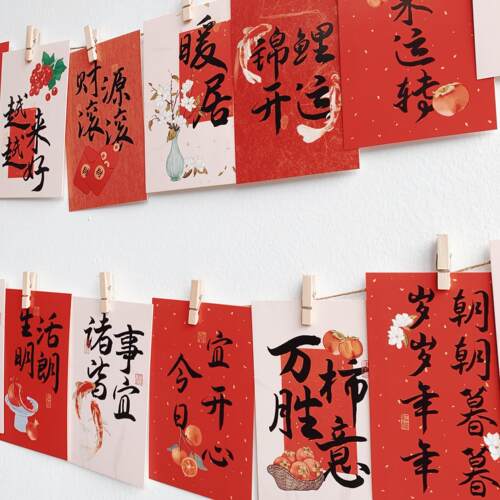 越来
越好
财源
滚滚
暖居
锦鲤
开运
来运转
生活
明朗
诸事
皆宜
今日
宜开心
万柿
胜意
岁岁年年
朝朝暮暮